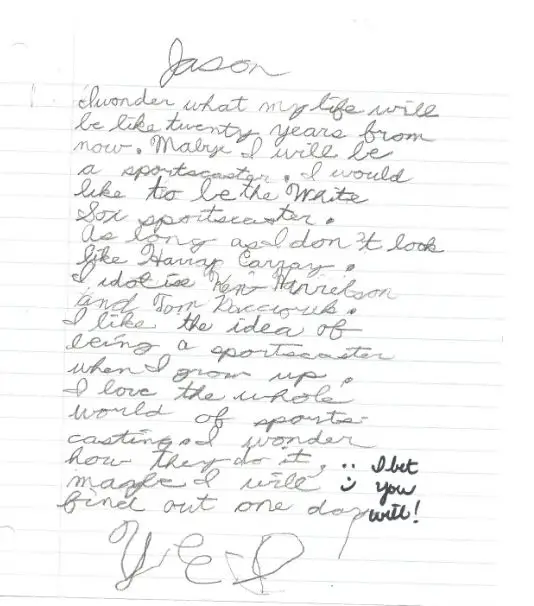 Jason
I wonder what my life will
be like twenty years from
now. Mabye I will be
a sportscaster. I would
like to be the White
Sox sportscaster.
As long as I don't look
like Harray Carray.
I idolise Ken Harrelson
and Tom
I like the idea of
being a sportscaster
when I grow up.
I love the whole
world of sports-
casting. I wonder
how they do it,
maybe I will
find out one day
:) I bet
you
will!
YES